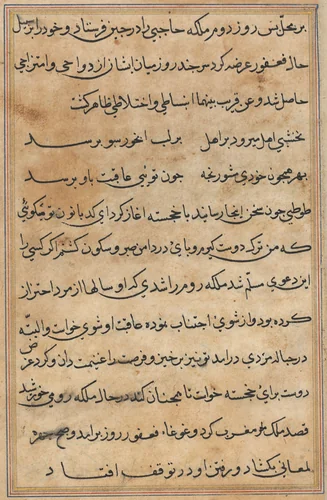 روز دوم ملکه حاجبی را در چین فرستاد و خود را بر سبیل
حال فغفور عرضه کرد سر چند روز میان ایشان ازدواجی و امتزاجی
حاصل شد و عن قریب بینهما انبساطی و اختلاطی ظاهر گشت
نخشبی اهل میرود بر اهل بر لب انخور سبو برسد
بهر همچون خودی مشو رنجه چون توئی عاقبت باو برسد
طوطی چون سخن اینجا رسانید با خجسته آغاز کرد ای کدبانو تو میگوئی
که من ترک دوست گیرم و پای در دامن صبر و سکون کشم اگر کسی را
این دعوی مسلم شدی ملکه روم را شدی که او سالها از مرد احتراز
کرده بود و از شوی اجتناب نموده عاقبت او شوی خواست و البته
در حباله مردی درآمد تو نیز برخیز و فرصت را غنیمت دان و گرد
دوست برای خجسته خواست تا همچنان کند در حال ملکه رومی خورشید
قصد ملک مغرب کرد و غوغاء فغفور روز برآمد و صبح
لمعانی بگشاد و رفتن او در توقف افتاد